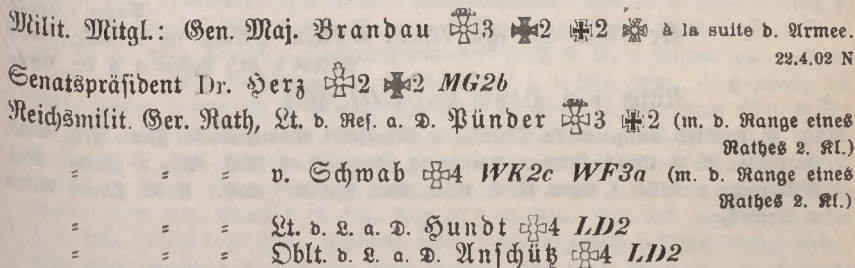 Milit. Mitgl.: Gen. Maj. Brandau 3 2 2 à la suite d. Armee.
22.4.02 N
Senatspräsident Dr. Herz 2 2 MG2b
Reichsmilit. Ger. Rath, Lt. d. Res. a. D. Pünder 3 2 (m. d. Range eines
Rathes 2. Kl.)
= = = v. Schwab 4 WK2c WF3a (m. d. Range eines
Rathes 2. Kl.)
= = = Lt. d. L. a. D. Hundt 4 LD2
= = = Oblt. d. L. a. D. Anschütz 4 LD2